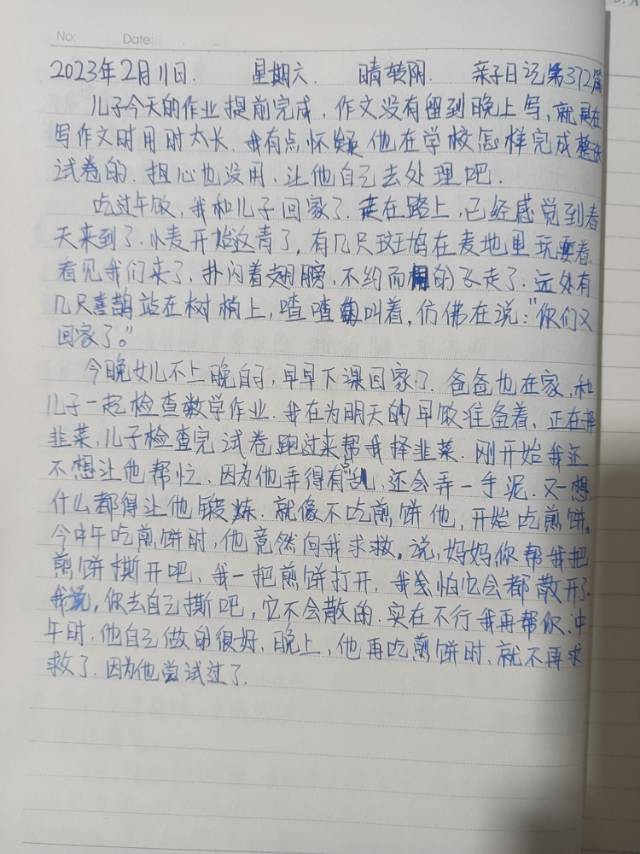 No:    Date:
2023年2月11日.    星期六.    晴转阴.    亲子日记第372篇
儿子今天的作业提前完成,作文没有留到晚上写,就是在
写作文时用时太长.我有点怀疑他在学校怎样完成整张
试卷的.担心也没用.让他自己去处理吧.
吃过午饭,我和儿子回家了.走在路上,已经感觉到春
天来到了.小麦开始返青了,有几只斑鸠在麦地里玩耍着.
看见我们来了,扑闪着翅膀,不约而同的飞走了.远处有
几只喜鹊站在树梢上,喳喳的叫着,仿佛在说:"你们又
回家了。"
今晚女儿不上晚自习,早早下课回家了.爸爸也在家,和
儿子一起检查数学作业.我在为明天的早饭准备着,正在择
韭菜,儿子检查完试卷跑过来帮我择韭菜.刚开始我还
不想让他帮忙,因为他弄得有点乱,还会弄一手泥.又想,
什么都得让他锻炼.就像不吃煎饼他,开始吃煎饼。
今中午吃煎饼时,他竟然向我求救。说,妈妈你帮我把
煎饼撕开吧,我一把煎饼打开,我怕它会都散开了.
我说,你去自己撕吧,它不会散的.实在不行我再帮你.中
午时.他自己做的很好.晚上,他再吃煎饼时.就不再求
救了.因为他尝试过了.